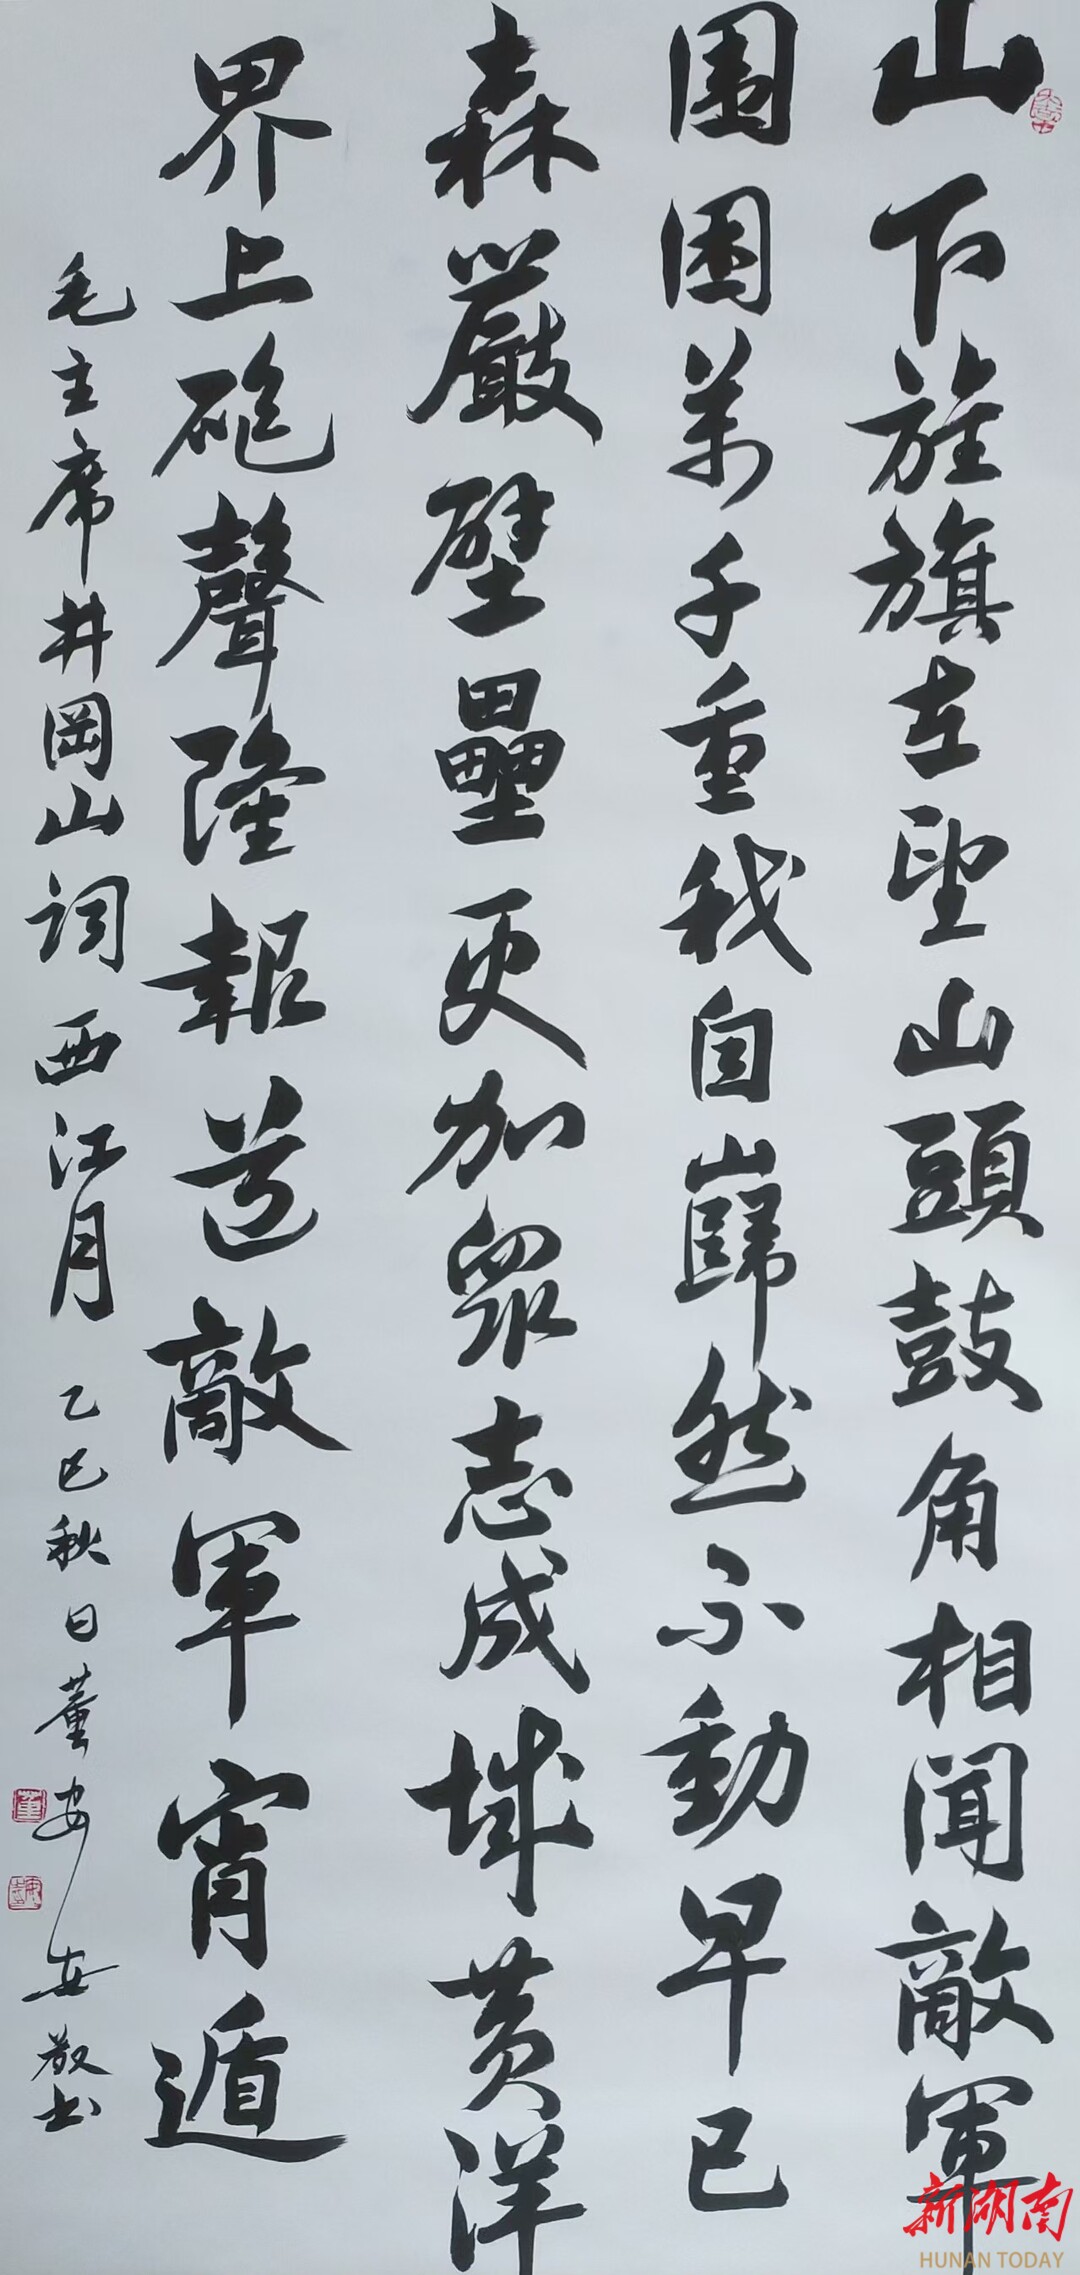 山下旌旗在望山頭鼓角相聞敵軍
圍困萬千重我自巋然不動早已
森嚴壁壘更加眾志成城黄洋
界上砲聲隆報道敵軍宵遁
毛主席井岡山詞西江月 乙巳秋日董安安敬书
新湖南
HUNAN TODAY